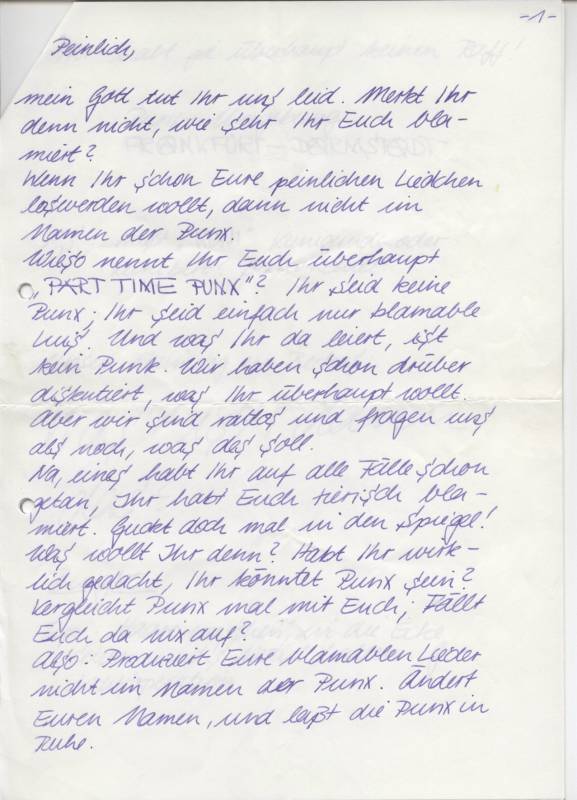 -1-
Peinlich,
mein Gott tut Ihr uns leid. Merkt Ihr
denn nicht, wie sehr Ihr Euch bla-
miert?
Wenn Ihr schon Eure peinlichen Liedchen
loswerden wollt, dann nicht im
Namen der Punx.
Wieso nennt Ihr Euch überhaupt
„PART TIME PUNX"? Ihr seid keine
Punx; Ihr seid einfach nur blamable
Und was Ihr da leiert, ist
kein Punk. Wir haben schon drüber
diskutiert, was Ihr überhaupt wollt.
Aber wir sind ratlos und fragen uns
als noch, was das soll.
Na, eines habt Ihr auf alle Fälle schon
getan, Ihr habt Euch tierisch bla-
miert. Guckt doch mal in den Spiegel!
Was wollt Ihr denn? Habt Ihr wirk-
lich gedacht, Ihr könntet Punx sein?
Vergleicht Punx mal mit Euch; Fällt
Euch da nix auf?
Also: Produziert Eure blamablen Lieder
nicht im Namen der Punx. Ändert
Euren Namen, und laßt die Punx in
Ruhe.